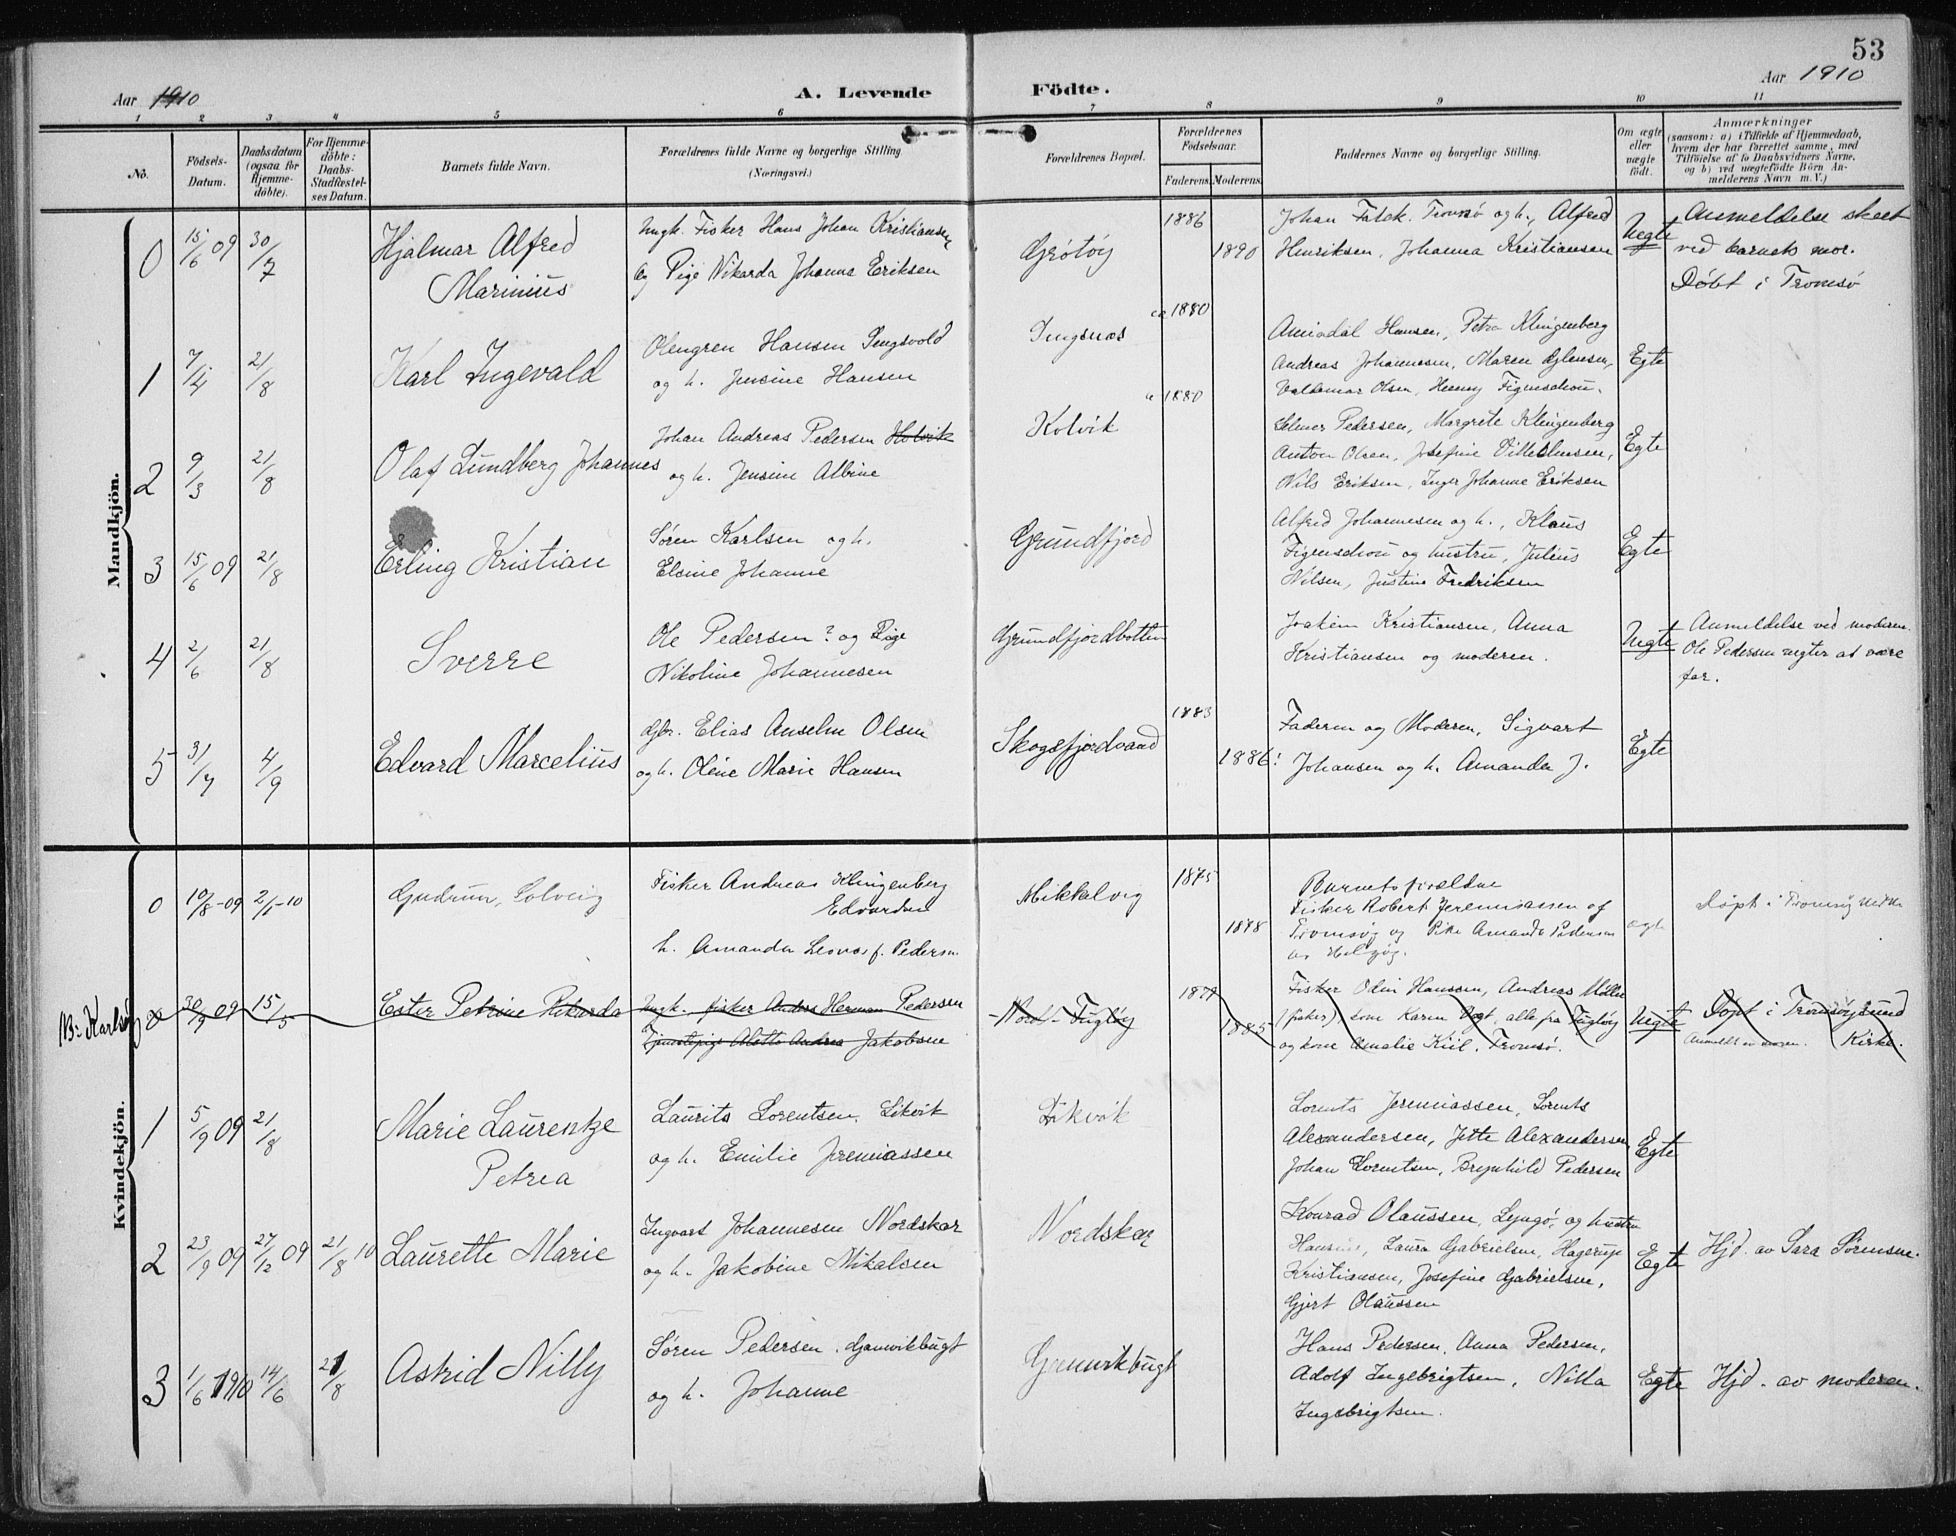 53
Aar 1910
A. Levende Födte.
Aar 1910
1 2 3 4 5 6 7 8 9 10 11
No.
Födsels-Datum.
Daabsdatum (ogsaa för Hjemmedöbte).
For Hjemmedöbte: Daabs-Stadfæstelses Datum.
Barnets fulde Navn.
Forældrenes fulde Navne og borgerlige Stilling
(Næringsvei.)
Forældrenes Bopæl.
Forældrenes Födselsaar.
Faderens. Moderens.
Faddernes Navne og borgerlige Stilling.
Om ægte eller uægte födt.
Anmærkninger
(saasom: a) i Tilfælde af Hjemmedaab, hvem der har forrettet samme, med Tilföielse af to Daabsvidners Navne, og b) ved uægtefödte Börn Anmelderens Navn m. V.)
Mandkjön.
0 15/6 09 30/7 Hjalmar Alfred
Marinius
Ungk. Fisker Hans Johan Kristiansen
og Pige Nikarda Johanna Eriksen
Grötöy
1886
1890
Johan Falck. Tromsø og h., Alfred
Henriksen, Johanna Kristiansen
Uegte
Anmeldelse skeet
ved barnets mor.
Døbt i Tromsø
1 7/4 21/8 Karl Ingevald
Olengren Hansen
og h. Jensine Hansen
ca 1880
Hansen, Petra Klingenberg
Andreas Johannessen, Maren
Valdemar Olsen, Henny Figenschou.
Egte
2 9/3 21/8 Olaf Lundberg Johannes
Johan Andreas Pedersen Kolvik
og h. Jensine Albine
Kolvik
" 1880
Pedersen, Margrete Klingenberg
Anton Olsen, Josefine Vilhelmsen,
Nils Eriksen, Inger Johanne Eriksen
Egte
3 15/6 09 21/8 Erling Kristian
Søren Karlsen og h.
Elsine Johanne
Grundfjord
Alfred Johannesen og h., Klaus
Figenschou og hustru, Julius
Nilsen, Justine Fredriksen
Egte
4 2/6 21/8 Sverre
Ole Pedersen? og Pige
Nikoline Johannesen
Grundfjordbotten
Joakim Kristiansen, Anna
Kristiansen og moderen.
Uegte
Anmeldelse ved moderen.
Ole Pedersen negter at være
far.
5 31/7 4/9 Edvard Marcelius
Gbr. Elias Anselm Olsen
og h. Oline Marie Hansen
Skogsfjordvand
1883
1886!
Faderen og Moderen, Sigvart
Johansen og h. Amanda J.
Egte
Kvindekjön.
0 10/8-09 2/1-10 Gudrun, Solveig
Fisker Andreas Klingenberg
Edvardsen
h. Amanda f. Pedersen
Mikkelvig
1875
1878
Barnets forældre
Fisker Robert Jeremiassen af
Tromsø og Pike Amanda Pedersen
av Helgøy.
ægte
Døpt i
NB: Karlsøy
0 30/9 09 15/5 Ester Petrine Rikarda
Ungk. fisker Andre Herman Pedersen
Tjenestepige Alette Andrea Jakobsen
Nord-Fugløy
1879
1885
Fisker Odin Hanssen, Andreas Møller
(fisker), som Karen Vogt, alle fra Fugløy
og kone Amalie Kiil. Tromsø.
Uegte
Døpt i Tromsøysund
Anmeldt av moren. Kirke.
1 5/9 09 21/8 Marie Laurentze
Petrea
Laurits Lorentsen. Likvik
og h. Emilie Jeremiassen
Likvik
Lorents Jeremiassen, Lorents
Alexandersen, Jette Alexandersen,
Johan Lorentsen, Brynhild Pedersen
Egte
2 23/9 09 27/12 09 21/8 10 Laurette Marie
Ingvart Johannesen Nordskar
og h. Jakobine Mikalsen
Nordskar
Konrad Olaussen, Lyngö, og hustru
Laura Gabrielsen, Hagerup
Kristiansen, Josefine Gabrielsen,
Gjert Olaussen
Egte
Hjd. av Sara Sørensen.
3 1/6 1910 14/6 21/8 Astrid Nilly
Søren Pedersen. Gamvikbugt
og h. Johanne
Gamvikbugt
Hans Pedersen, Anna Pedersen,
Adolf Ingebrigtsen, Nilla
Ingebrigtsen.
Egte
Hjd. av moderen.